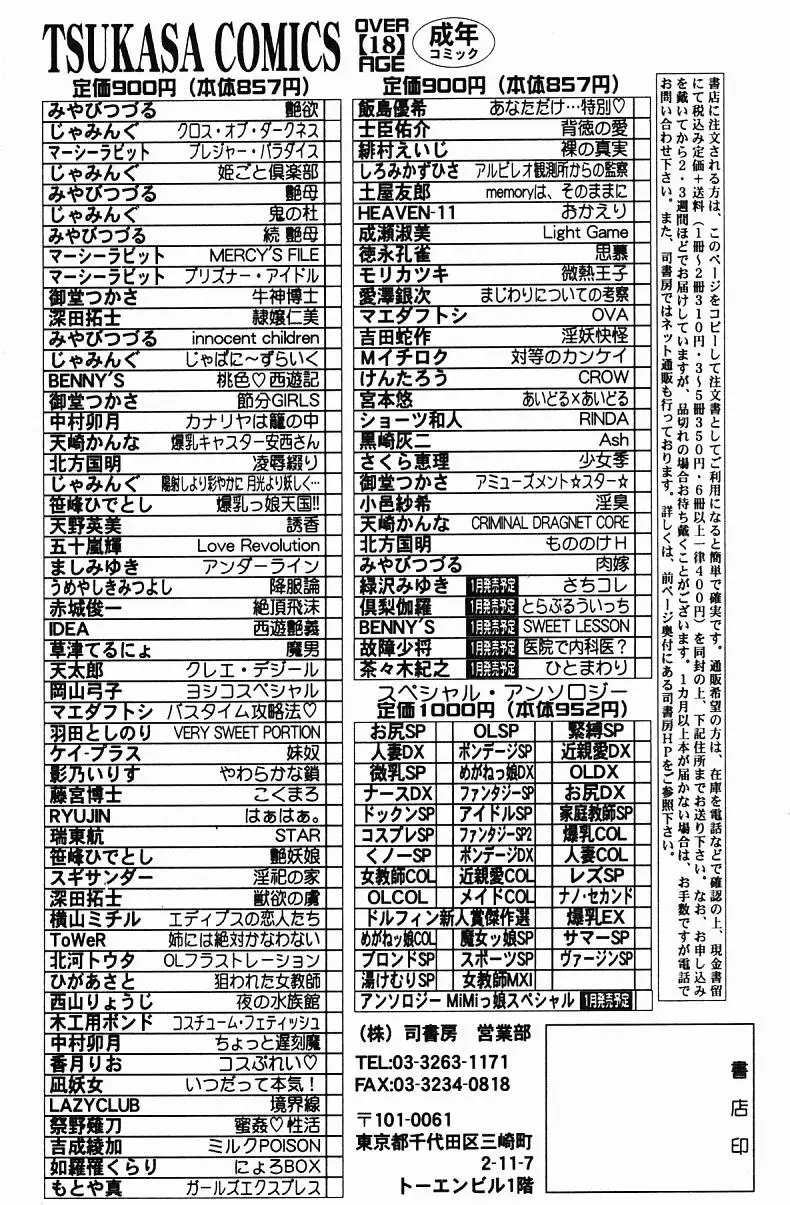 TSUKASA COMICS
OVER
【18】
AGE
成年
コミック
定価900円（本体857円）
みやびつづる 艶欲
じゃみんぐ クロス・オブ・ダークネス
マーシーラビット プレジャー・パラダイス
じゃみんぐ 姫ごと倶楽部
みやびつづる 艶母
じゃみんぐ 鬼の杜
みやびつづる 続 艶母
マーシーラビット MERCY'S FILE
マーシーラビット プリズナー・アイドル
御堂つかさ 牛神博士
深田拓士 隷嬢仁美
みやびつづる innocent children
じゃみんぐ じゃぱに〜ずらいく
BENNY'S 桃色♡西遊記
御堂つかさ 節分GIRLS
中村卯月 カナリヤは籠の中
天崎かんな 爆乳キャスター安西さん
北方国明 凌辱綴り
じゃみんぐ 陽射しより彩やかに 月光より妖しく…
笹峰ひでとし 爆乳っ娘天国!!
天野英美 誘香
五十嵐輝 Love Revolution
ましみゆき アンダーライン
うめやしきみつよし 降服論
赤城俊一 絶頂飛沫
IDEA 西遊艶義
草津てるにょ 魔男
天太郎 クレエ・デジール
岡山弓子 ヨシコスペシャル
マエダフトシ バスタイム攻略法♡
羽田としのり VERY SWEET PORTION
ケイ・プラス 妹奴
影乃いりす やわらかな鎖
藤宮博士 こくまろ
RYUJIN はぁはぁ。
瑞東航 STAR
笹峰ひでとし 艶妖娘
スギサンダー 淫祀の家
深田拓士 獣欲の虜
横山ミチル エディプスの恋人たち
ToWeR 姉には絶対かなわない
北河トウタ OLフラストレーション
ひがあさと 狙われた女教師
西山りょうじ 夜の水族館
木工用ボンド コスチューム・フェティッシュ
中村卯月 ちょっと遅刻魔
香月りお コスぷれい♡
凪妖女 いつだって本気！
LAZYCLUB 境界線
祭野薙刀 蜜姦♡性活
吉成綾加 ミルクPOISON
如羅罹くらり にょろBOX
もとや真 ガールズエクスプレス
定価900円（本体857円）
飯島優希 あなただけ…特別♡
士臣佑介 背徳の愛
緋村えいじ 裸の真実
しろみかずひさ アルビレオ観測所からの監察
土屋友郎 memoryは、そのままに
HEAVEN-11 おかえり
成瀬淑美 Light Game
徳永孔雀 思慕
モリカツキ 微熱王子
愛澤銀次 まじわりについての考察
マエダフトシ OVA
吉田蛇作 淫妖快怪
Mイチロク 対等のカンケイ
けんたろう CROW
宮本悠 あいどる×あいどる
ショーツ和人 RINDA
黒崎灰二 Ash
さくら恵理 少女季
御堂つかさ アミューズメント☆スター☆
小邑紗希 淫臭
天崎かんな CRIMINAL DRAGNET CORE
北方国明 もののけH
みやびつづる 肉嫁
緑沢みゆき 1月発売予定 さちコレ
倶梨伽羅 1月発売予定 とらぶるういっち
BENNY'S 1月発売予定 SWEET LESSON
故障少将 1月発売予定 医院で内科医？
茶々木紀之 1月発売予定 ひとまわり
スペシャル・アンソロジー
定価1000円（本体952円）
お尻SP OLSP 緊縛SP
人妻DX ボンデージSP 近親愛DX
微乳SP めがねっ娘DX OLDX
ナースDX ファンタジーSP お尻DX
ドックンSP アイドルSP 家庭教師SP
コスプレSP ファンタジーSP2 爆乳COL
くノ一SP ボンデージDX 人妻COL
女教師COL 近親愛COL レズSP
OLCOL メイドCOL ナノ・セカンド
ドルフィン新人賞傑作選 爆乳EX
めがねッ娘COL 魔女ッ娘SP サマーSP
ブロンドSP スポーツSP ヴァージンSP
湯けむりSP 女教師MXI
アンソロジー MiMiっ娘スペシャル 1月発売予定
書店に注文される方は、このページをコピーして注文書としてご利用になると簡単で確実です。通販希望の方は、在庫を電話などで確認の上、現金書留
にて税込み定価＋送料（1冊〜2冊310円・3〜5冊350円・6冊以上一律400円）を同封の上、下記住所までお送り下さい。なお、お申し込み
を戴いてから2・3週間ほどでお届けしていますが、品切れの場合お待ち戴くことがございます。1カ月以上本が届かない場合は、お手数ですが電話で
お問い合わせ下さい。また、司書房ではネット通販も行っております。詳しくは、前ページ奥付にある司書房HPをご参照下さい。
（株）司書房 営業部
TEL:03-3263-1171
FAX:03-3234-0818
〒101-0061
東京都千代田区三崎町
2-11-7
トーエンビル1階
書店印